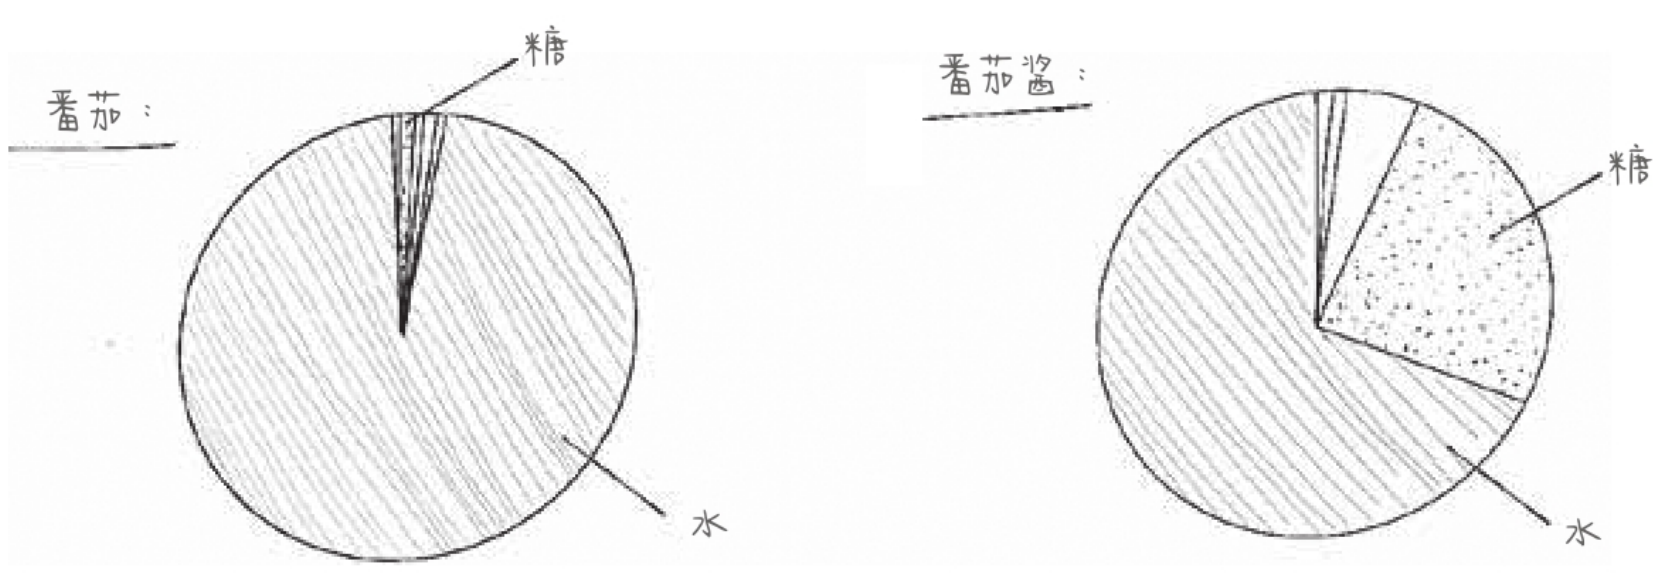 番茄：
糖
水
番茄酱：
糖
水